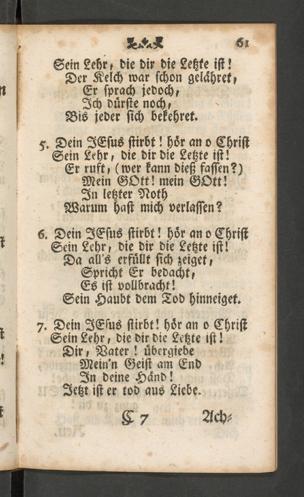 61
Sein Lehr, die dir die Letzte ist!
Der Kelch war schon gelähret,
Er sprach jedoch,
Ich dürste noch,
Bis jeder sich bekehret.
5. Dein JEsus stirbt! hör an o Christ
Sein Lehr, die dir die Letzte ist!
Er ruft, (wer kann dieß fassen?)
Mein GOtt! mein GOtt!
In letzter Noth
Warum hast mich verlassen?
6. Dein JEsus stirbt! hör an o Christ
Sein Lehr, die dir die Letzte ist!
Da all's erfüllt sich zeiget,
Spricht Er bedacht,
Es ist vollbracht!
Sein Haubt dem Tod hinneiget.
7. Dein JEsus stirbt! hör an o Christ
Sein Lehr, die dir die Letzte ist!
Dir, Vater! übergiebe
Mein'n Geist am End
In deine Händ!
Jetzt ist er tod aus Liebe.
C 7 Ach-